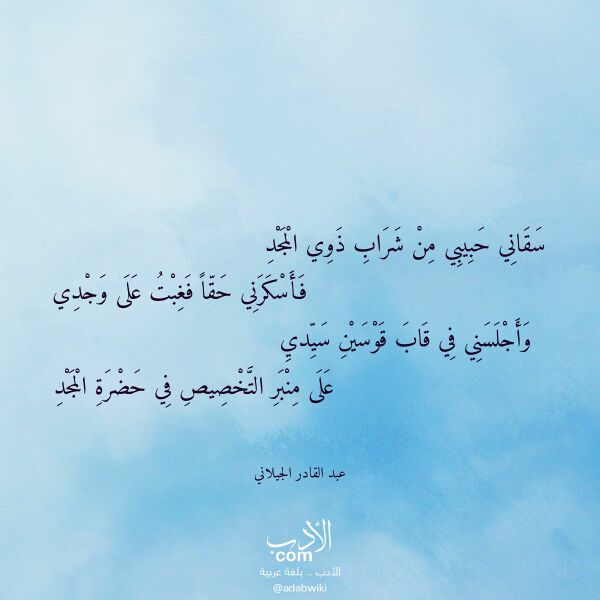 سَقَانِي حَبِيبِي مِنْ شَرَابِ ذَوِي الْمَجْدِ
فَأَسْكَرَنِي حَقّاً فَغِبْتُ عَلَى وَجْدِي
وَأَجْلَسَنِي فِي قَابَ قَوْسَيْنِ سَيِّدِي
عَلَى مِنْبَرِ التَّخْصِيصِ فِي حَضْرَةِ الْمَجْدِ
عبد القادر الجيلاني
الأدب
com
الأدب .. بلغة عربية
@adabwiki